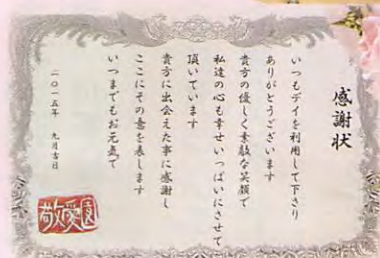 感謝状
いつもデイを利用して下さり
ありがとうございます
貴方の優しく素敵な笑顔で
私達の心も幸せいっぱいにさせて
頂いています
貴方に出会えた事に感謝し
ここにその意を表します
いつまでもお元気で
二〇一五年 九月吉日
敬愛園